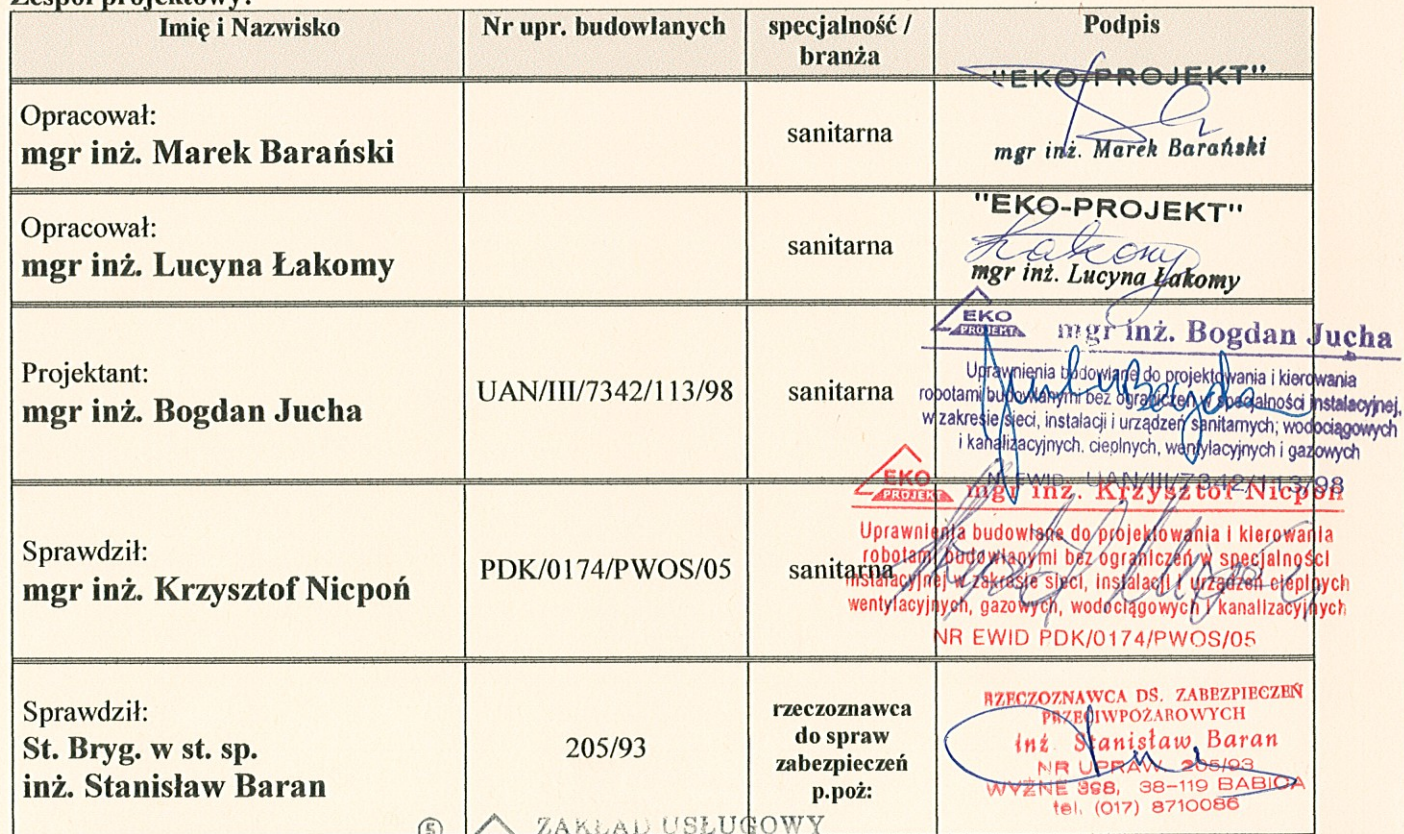 Zespół projektowy:
Imię i Nazwisko
Nr upr. budowlanych
specjalność /
branża
Podpis
Opracował:
mgr inż. Marek Barański
sanitarna
"EKO-PROJEKT"
mgr inż. Marek Barański
Opracował:
mgr inż. Lucyna Łakomy
sanitarna
"EKO-PROJEKT"
Łakomy
mgr inż. Lucyna Łakomy
Projektant:
mgr inż. Bogdan Jucha
UAN/III/7342/113/98
sanitarna
EKO
PROJEKT
mgr inż. Bogdan Jucha
Uprawnienia budowlane do projektowania i kierowania
robotami budowlanymi bez ograniczeń w specjalności instalacyjnej,
w zakresie sieci, instalacji i urządzeń sanitarnych; wodociągowych
i kanalizacyjnych, cieplnych, wentylacyjnych i gazowych
NR EWID. UAN/III/7342/113/98
Sprawdził:
mgr inż. Krzysztof Nicpoń
PDK/0174/PWOS/05
sanitarna
EKO
PROJEKT
mgr inż. Krzysztof Nicpoń
Uprawnienia budowlane do projektowania i kierowania
robotami budowlanymi bez ograniczeń w specjalności
instalacyjnej w zakresie sieci, instalacji i urządzeń cieplnych
wentylacyjnych, gazowych, wodociągowych i kanalizacyjnych
NR EWID PDK/0174/PWOS/05
Sprawdził:
St. Bryg. w st. sp.
inż. Stanisław Baran
205/93
rzeczoznawca
do spraw
zabezpieczeń
p.poż:
RZECZOZNAWCA DS. ZABEZPIECZEŃ
PRZECIWPOŻAROWYCH
inż. Stanisław Baran
NR UPRAW. 205/93
WYŻNE 398, 38-119 BABICA
tel. (017) 8710086
5
ZAKŁAD USŁUGOWY